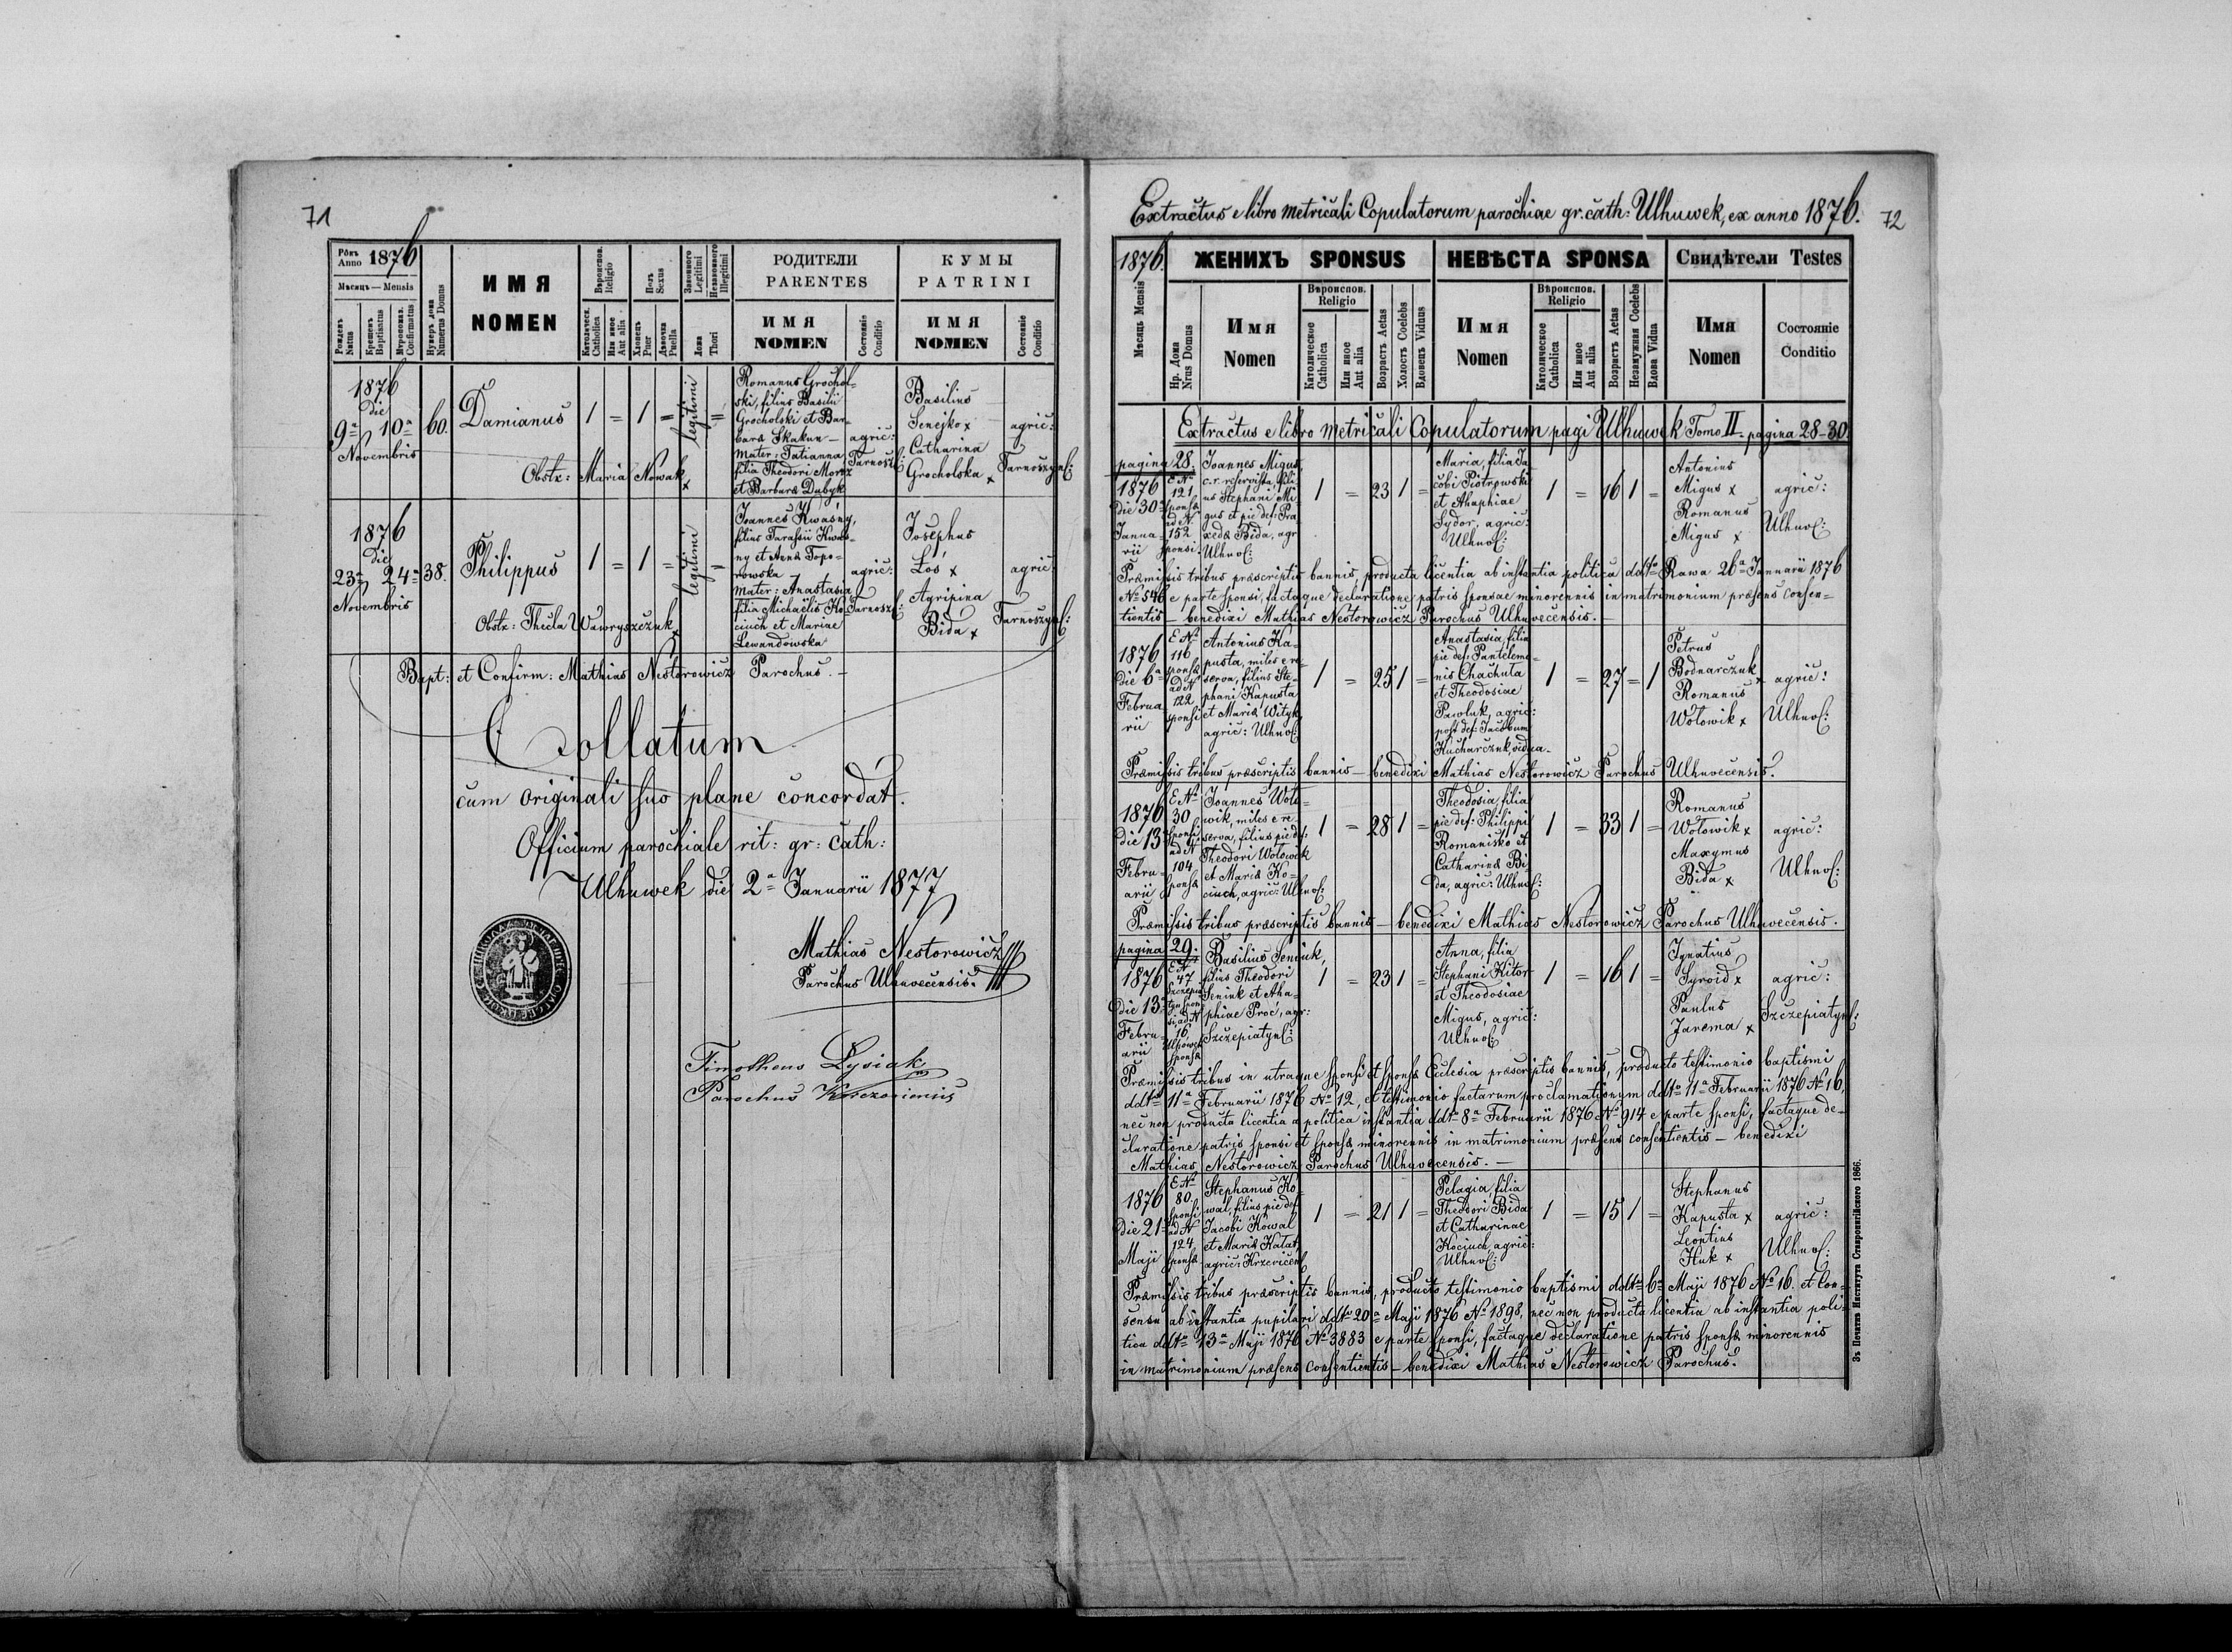 71
Рôкъ Anno 1876
Мѣсяць — Mensis
Рожденъ Natus
Крещенъ Baptisatus
Муропомаз. Confirmatus
Нумеръ дома Numerus Domus
ИМЯ
NOMEN
Вѣроиспов. Religio
Католическ. Catholica
Или иное Aut alia
Полъ Sexus
Хлопець Puer
Дѣвочка Puella
Законного Legitimi
Незаконного Illegitimi
Ложа Thori
РОДИТЕЛИ
PARENTES
ИМЯ
NOMEN
Состоянiе Conditio
КУМЫ
PATRINI
ИМЯ
NOMEN
Состоянiе Conditio
1876
die
9a 10a
Novembris
60.
Damianus
1 = 1 = legitimi =
Romanus Grochol-
ski, filius Basilii
Grocholski et Bar-
bara Skakun —
Mater: Tatianna
filia Theodori Moroz
et Barbara Dubyk
agric:
Tarnosz:
Basilius
Senejko x
Catharina
Grocholska x
agric:
Tarnoszyn:
Obstx: Maria Nowak x
1876
die
23a 24a
Novembris
38.
Philippus
1 = 1 = legitimi =
Joannes Kwasny,
filius Tarasii Kwas-
ny et Anna Topo-
rowska
Mater: Anastasia
filia Michaëlis Ko-
ciuch et Mariae
Lewandowska
agric:
Tarnosz:
Josephus
Łoś x
Agripina
Bida x
agric:
Tarnoszyn:
Obstx: Thecla Wawryszczuk x
Bapt: et Confirm: Mathias Nestorowicz Parochus. —
Collatum
cum originali suo plane concordat.
Officium parochiale rit: gr: cath:
Ulhuwek die 2a Januarii 1877
Mathias Nestorowicz
Parochus Ulhuvecensis.
Timotheus Lysiak
Parochus
Extractus e libro metricali Copulatorum parochiae gr. cath: Ulhuwek, ex anno 1876. 72
1876.
Мѣсяць Mensis
ЖЕНИХЪ SPONSUS
НЕВѢСТА SPONSA
Свидѣтели Testes
Нр. Дома Nrus Domus
Имя
Nomen
Вѣроиспов. Religio
Католическое Catholica
Или иное Aut alia
Возрастъ Aetas
Холостъ Coelebs
Вдовецъ Viduus
Имя
Nomen
Вѣроиспов. Religio
Католическое Catholica
Или иное Aut alia
Возрастъ Aetas
Незамужная Coelebs
Вдова Vidua
Имя
Nomen
Состоянiе
Conditio
Extractus e libro metricali Copulatorum pagi Ulhuwek Tomo II. pagina 28-30.
pagina 28.
1876
die 30a
Janua-
rii
E No
121
sponsa
ad N
152
sponsi
Joannes Migus,
c. r. reservista, fili-
us Stephani Mi-
gus et pie def: Pra-
xeda Bida, agr
Ulhuv:
1 = 23 1 =
Maria, filia Ja-
cobi Piotrowski
et Ahaphiae
Sydor, agric:
Ulhuv:
1 = 16 1 =
Antonius
Migus x
Romanus
Migus x
agric:
Ulhuv:
Præmissis tribus præscriptis bannis, producta licentia ab instantia politica ddto Rawa 26a Januarii 1876
No 546 e parte sponsi, factaque declaratione patris sponsae minorennis in matrimonium præsens consen-
tientis — benedixi Mathias Nestorowicz Parochus Ulhuvecensis. —
1876
die 6a
Februa-
rii
E No
116
sponsa
ad N
122
sponsi
Antonius Ka-
pusta, miles e re-
serva, filius Ste-
phani Kapusta
et Maria Wityk,
agric: Ulhuv:
1 = 25 1 =
Anastasia, filia
pie def: Panteleimo-
nis Chachula
et Theodosiae
Pawluk, agric:
post def: Jacobum
Kucharczuk, vidua —
1 = 27 = 1
Petrus
Bodnarczuk x
Romanus
Wołowik x
agric:
Ulhuv:
Præmissis tribus præscriptis bannis — benedixi Mathias Nestorowicz Parochus Ulhuvecensis.
1876
die 13a
Febru-
arii
E No
30
sponsi
ad N
104
sponsa
Joannes Woło-
wik, miles e re-
serva, filius pie def:
Theodori Wołowik
et Maria Ko-
ciuch, agric: Ulhuv:
1 = 28 1 =
Theodosia, filia
pie def: Philippi
Romanisko et
Catharina Bi-
da, agric: Ulhuv:
1 = 33 1 =
Romanus
Wołowik x
Maxymus
Bida x
agric:
Ulhuv:
Præmissis tribus præscriptis bannis — benedixi Mathias Nestorowicz Parochus Ulhuvecensis.
pagina 29.
1876
die 13a
Febru-
arii
E N
47
Szczepia-
tyn spon-
si, ad N
16
Ulhowek
sponsa
Basilius Seniuk,
filius Theodori
Seniuk et Aha-
phiae Proć, agr:
Szczepiatyn:
1 = 23 1 =
Anna, filia
Stephani Kitor
et Theodosiae
Migus, agric:
Ulhuv:
1 = 16 1 =
Ignatius
Syroid x
Paulus
Jarema x
agric:
Szczepiatyn:
Præmissis tribus in utraque sponsi et sponsa Ecclesia præscriptis bannis, producto testimonio baptismi
ddto 11a Februarii 1876 No 12, et testimonio factarum proclamationum ddto 11a Februarii 1876 No 16,
nec non producta licentia a politica instantia ddto 8a Februarii 1876 No 914 e parte sponsi, factaque de-
claratione patris sponsi et sponsa minorennis in matrimonium præsens consentientis — benedixi
Mathias Nestorowicz Parochus Ulhuvecensis. —
1876
die 21a
Maji
E No
80.
sponsi
ad N
124
sponsa
Stephanus Ko-
wal, filius pie def:
Jacobi Kowal
et Maria Kalat,
agric: Krzewicen:
1 = 21 1 =
Pelagia, filia
Theodori Bida
et Catharinae
Kociuch, agric:
Ulhuv:
1 = 15 1 =
Stephanus
Kapusta x
Leontius
Huk x
agric:
Ulhuv:
Præmissis tribus præscriptis bannis, producto testimonio baptismi ddto 6a Maji 1876 No 16. et Con-
sensu ab instantia pupilari ddto 20a Maji 1876 No 1898, nec non producta licentia ab instantia poli-
tica ddto 13a Maji 1876 No 3883 e parte sponsi, factaque declaratione patris sponsa minorennis
in matrimonium præsens consentientis — benedixi Mathias Nestorowicz Parochus.
Зъ Печатнѣ Института Ставропигiйского 1866.